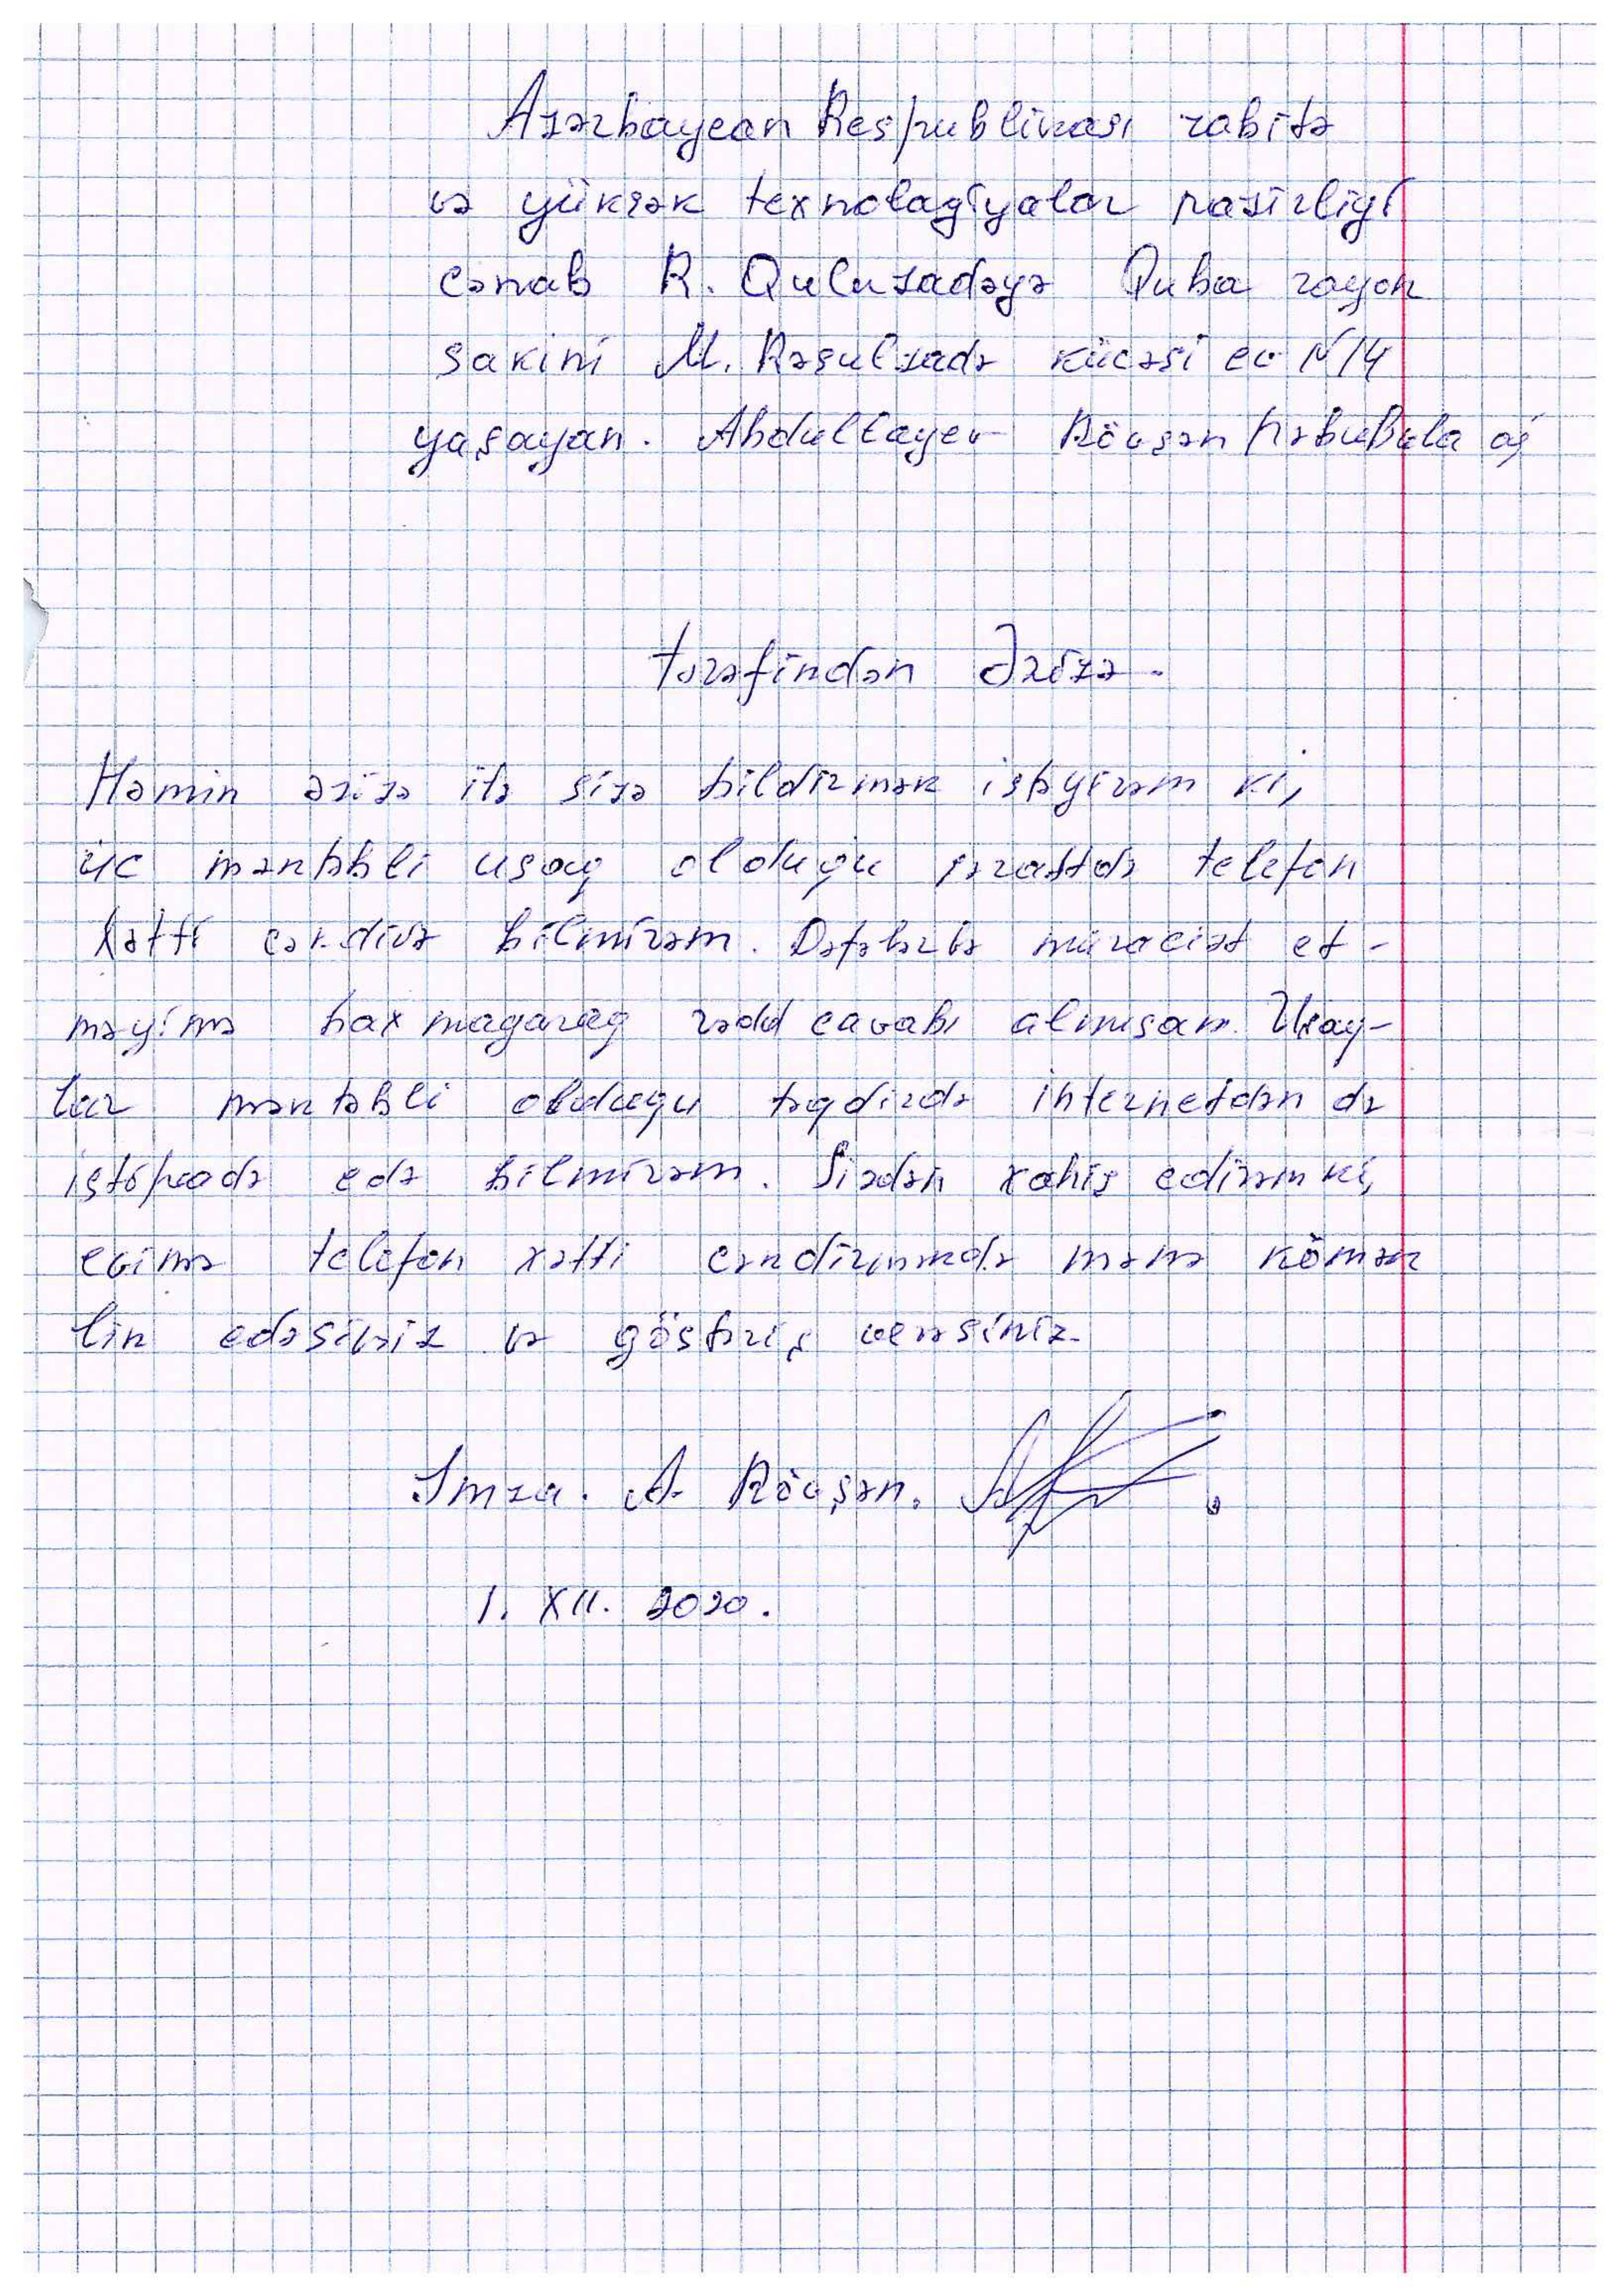 Azərbaycan Respublikası rabitə
və yüksək texnolagiyalar nazirligi
cənab R. Quluzadəyə Quba rayon
sakini M. Rəsulzadə küçəsi ev N14
yaşayan. Abdullayev Rövşən
tərəfindən Ərizə.
Həmin ərizə ilə sizə bildirmək istəyirəm ki,
üc məktəbli uşag oldugu şəraitdə telefon
xətti cəkdirə bilmirəm. Dəfələrlə müraciət et-
məyimə baxmagarag rədd cavabı almışam. Uşag-
lar məktəbli oldugu təqdirdə internetdən də
istifadə edə bilmirəm. Sizdən xahiş edirəm ki,
evimə telefon xətti cəkdirməkdə mənə kömək
lik edəsiniz və göstəriş verəsiniz.
İmza. A. Rövşən.
1. XII. 2020.